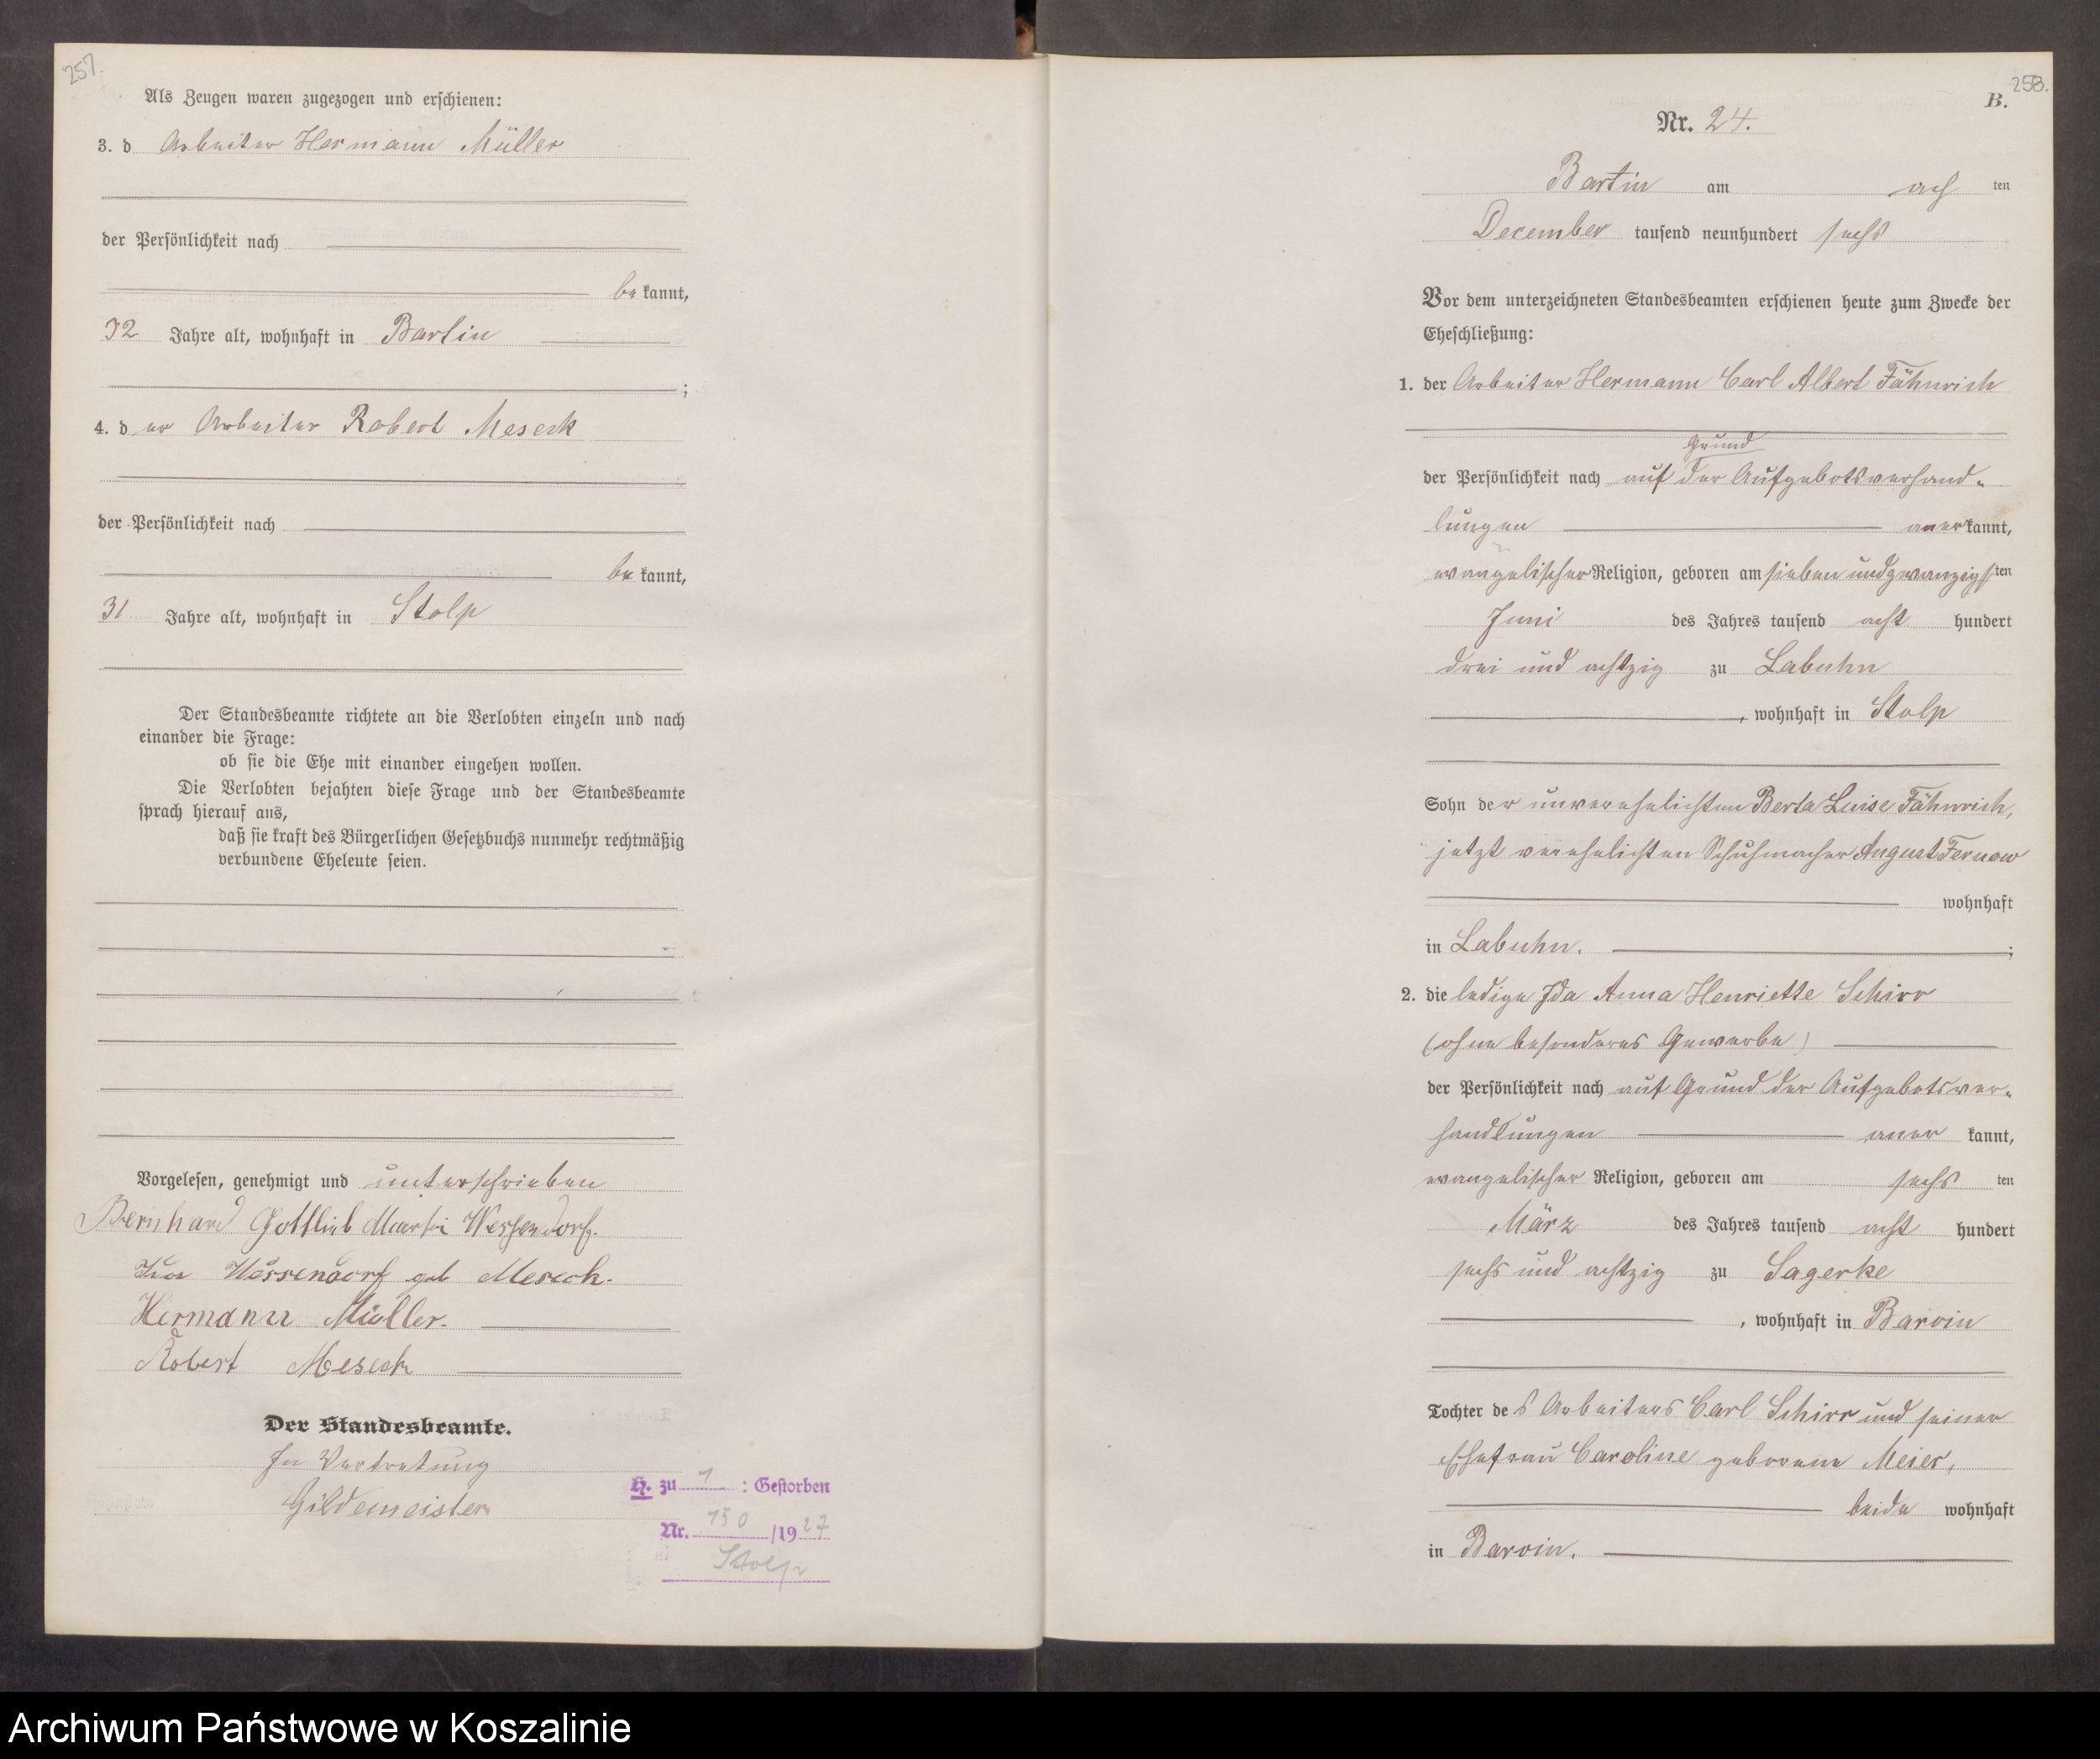 257.
Als Zeugen waren zugezogen und erschienen:
3. d Arbeiter Hermann Müller
der Persönlichkeit nach
be kannt,
32 Jahre alt, wohnhaft in Bartin
;
4. d er Arbeiter Robert Meseck
der Persönlichkeit nach
be kannt,
31 Jahre alt, wohnhaft in Stolp
Der Standesbeamte richtete an die Verlobten einzeln und nach
einander die Frage:
ob sie die Ehe mit einander eingehen wollen.
Die Verlobten bejahten diese Frage und der Standesbeamte
sprach hierauf aus,
daß sie kraft des Bürgerlichen Gesetzbuchs nunmehr rechtmäßig
verbundene Eheleute seien.
Vorgelesen, genehmigt und unterschrieben
Bernhard Gottlieb Martin Wessendorf.
Wessendorf geb Meseck.
Hermann Müller.
Robert Meseck
Der Standesbeamte.
In Vertretung
Gildemeister
H. zu 1 : Gestorben
Nr. 150 /1927
Stolp
258.
B.
Nr. 24.
Bartin am ach ten
December tausend neunhundert sechs
Vor dem unterzeichneten Standesbeamten erschienen heute zum Zwecke der
Eheschließung:
1. der Arbeiter Hermann Carl Albert Fähnrich
Grund
der Persönlichkeit nach auf der Aufgebotsverhand-
lungen aner kannt,
evangelischer Religion, geboren am sieben und zwanzigsten
Juni des Jahres tausend acht hundert
drei und achtzig zu Labuhn
, wohnhaft in Stolp
Sohn der unverehelichten Berta Luise Fähnrich,
jetzt verehelichten Schuhmacher August Fernow
wohnhaft
in Labuhn. ;
2. die ledige Ida Anna Henriette Schirr
(ohne besonderes Gewerbe)
der Persönlichkeit nach auf Grund der Aufgebotsver-
handlungen aner kannt,
evangelischer Religion, geboren am sechs ten
März des Jahres tausend acht hundert
sechs und achtzig zu Sagerke
, wohnhaft in Barvin
Tochter des Arbeiters Carl Schirr und seiner
Ehefrau Caroline geborene Meier,
beide wohnhaft
in Barvin.
Archiwum Państwowe w Koszalinie